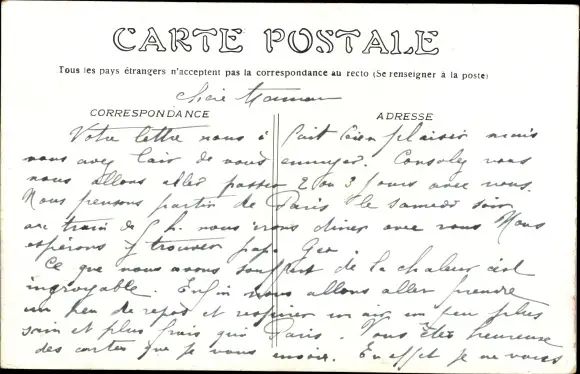 CARTE POSTALE
Tous les pays étrangers n'acceptent pas la correspondance au recto (Se renseigner à la poste)
chère Maman
CORRESPONDANCE ADRESSE
Votre lettre nous a fait bien plaisir mais
vous avez l'air de vous ennuyer. Consolez vous
nous allons aller passer 2 ou 3 jours avec vous.
Nous pensons partir de Paris le samedi soir
au train de 5 h. nous irons diner avec vous Nous
espérons y trouver papa
Ce que nous avons souffert de la chaleur c'est
incroyable. Enfin nous allons aller prendre
un peu de repos et respirer un air un peu plus
sain et plus frais qu'à Paris. Vous êtes heureuse
des cartes que je vous envoie. En effet je ne vous